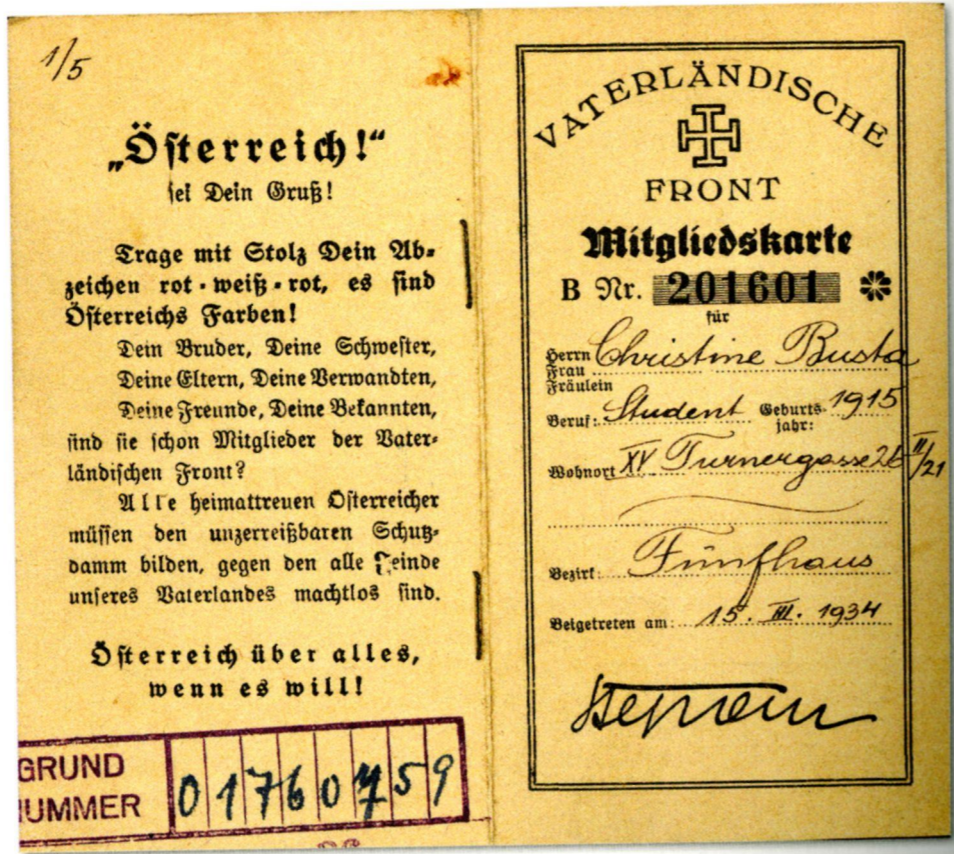 1/5
„Österreich!“
sei Dein Gruß!
Trage mit Stolz Dein Ab-
zeichen rot-weiß-rot, es sind
Österreichs Farben!
Dein Bruder, Deine Schwester,
Deine Eltern, Deine Verwandten,
Deine Freunde, Deine Bekannten,
sind sie schon Mitglieder der Vater-
ländischen Front?
Alle heimattreuen Österreicher
müssen den unzerreißbaren Schutz-
damm bilden, gegen den alle Feinde
unseres Vaterlandes machtlos sind.
Österreich über alles,
wenn es will!
GRUND
NUMMER 01760759
VATERLÄNDISCHE
FRONT
Mitgliedskarte
B Nr. 201601
für
Herrn
Frau Christine Busta
Fräulein
Beruf: Student Geburts-jahr: 1915
Wohnort XV Turnergasse 26 II/21
Bezirk: Fünfhaus
Beigetreten am: 15. III. 1934